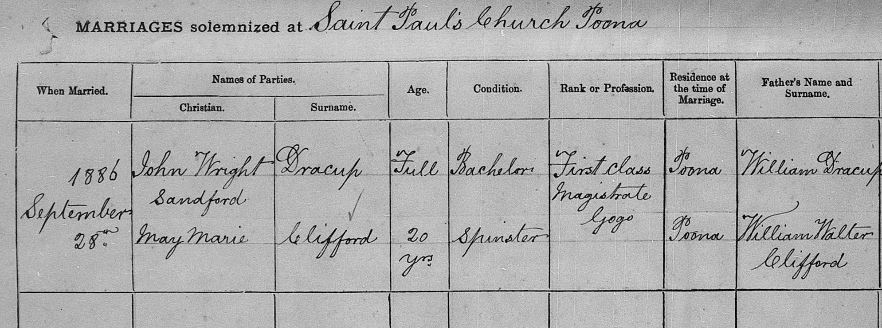 MARRIAGES solemnized at Saint Paul's Church Poona
When Married.
Names of Parties.
Christian.
Surname.
Age.
Condition.
Rank or Profession.
Residence at
the time of
Marriage.
Father's Name and
Surname.
1886
September
28th
John Wright
Sandford
Dracup
Full
Bachelor
First class
Magistrate
Gogo
Poona
William Dracup
May Marie
Clifford
20
yrs
Spinster
Poona
William Walter
Clifford